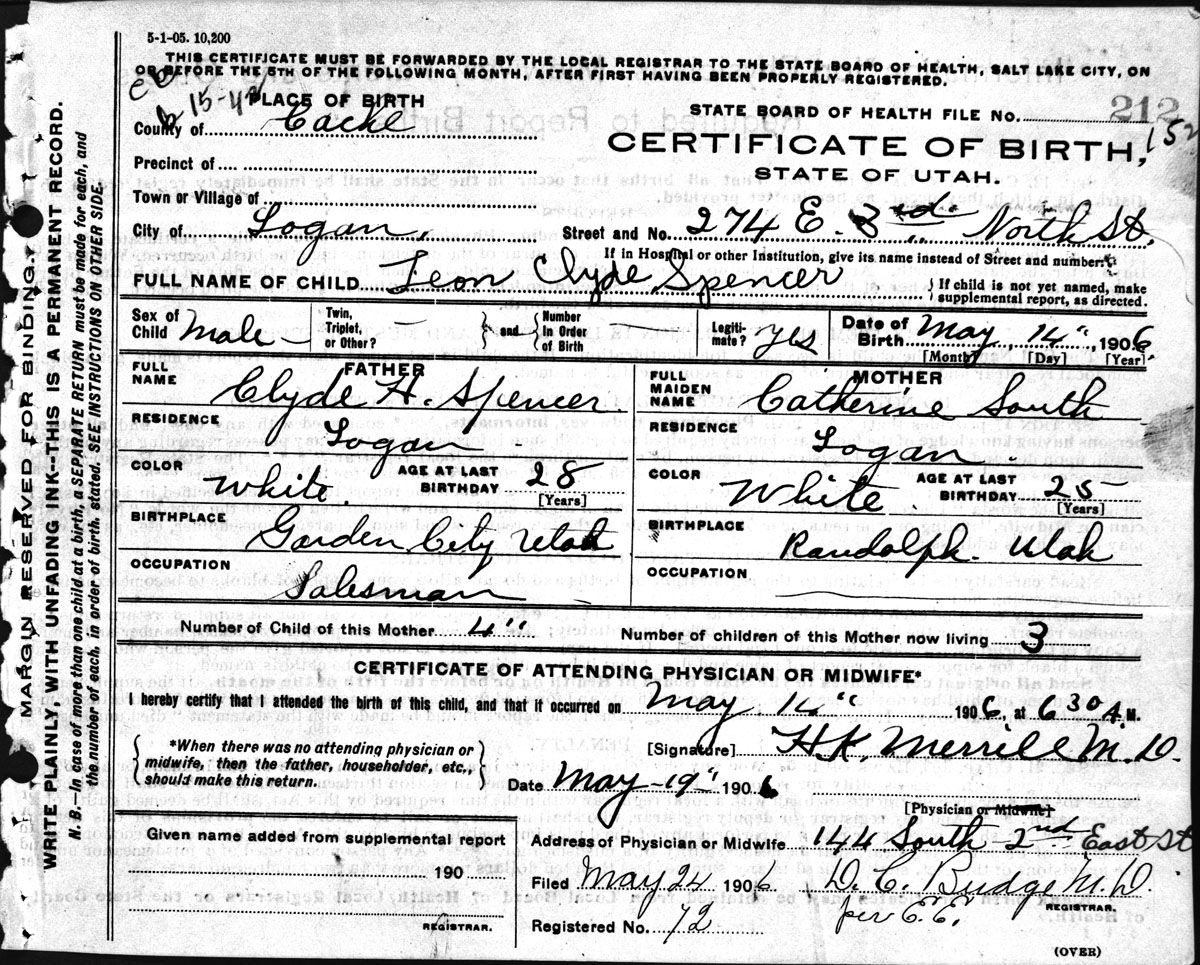 5-1-05. 10,200
THIS CERTIFICATE MUST BE FORWARDED BY THE LOCAL REGISTRAR TO THE STATE BOARD OF HEALTH, SALT LAKE CITY, ON
OR BEFORE THE 5TH OF THE FOLLOWING MONTH, AFTER FIRST HAVING BEEN PROPERLY REGISTERED.
PLACE OF BIRTH
STATE BOARD OF HEALTH FILE No. 212
152
County of Cache
CERTIFICATE OF BIRTH,
Precinct of
STATE OF UTAH.
Town or Village of
City of Logan, Street and No. 274 E. 3rd. North St.
If in Hospital or other Institution, give its name instead of Street and number.
FULL NAME OF CHILD Leon Clyde Spencer
If child is not yet named, make
supplemental report, as directed.
Sex of Child Male Twin, Triplet, or Other? and Number In Order of Birth Legiti- mate? yes Date of Birth May 14" 1906
[Month] [Day] [Year]
FATHER
FULL NAME Clyde H. Spencer
RESIDENCE Logan
COLOR White AGE AT LAST BIRTHDAY 28
[Years]
BIRTHPLACE Garden City Utah
OCCUPATION Salesman
MOTHER
FULL MAIDEN NAME Catherine South
RESIDENCE Logan
COLOR White AGE AT LAST BIRTHDAY 25
[Years]
BIRTHPLACE Randolph. Utah
OCCUPATION
Number of Child of this Mother 4" Number of children of this Mother now living 3
CERTIFICATE OF ATTENDING PHYSICIAN OR MIDWIFE*
I hereby certify that I attended the birth of this child, and that it occurred on May 14" 1906, at 6 30 A. M.
*When there was no attending physician or
midwife, then the father, householder, etc.,
should make this return.
[Signature] H.K. Merrill M.D.
Date May 19" 1906
[Physician or Midwife]
Address of Physician or Midwife 144 South 2nd East St
Given name added from supplemental report
190
REGISTRAR.
Filed May 24 1906 D. C. Budge M.D.
REGISTRAR.
per C.C.
Registered No. 72
(OVER)
MARGIN RESERVED FOR BINDING
WRITE PLAINLY, WITH UNFADING INK--THIS IS A PERMANENT RECORD.
N. B.—In case of more than one child at a birth, a SEPARATE RETURN must be made for each, and
the number of each, in order of birth, stated. SEE INSTRUCTIONS ON OTHER SIDE.